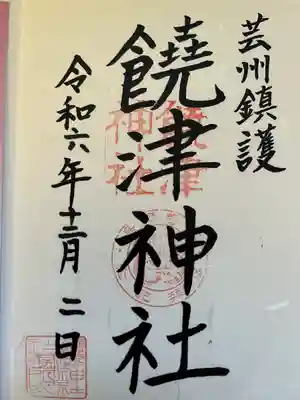 芸州鎮護
饒津神社
令和六年十二月二日